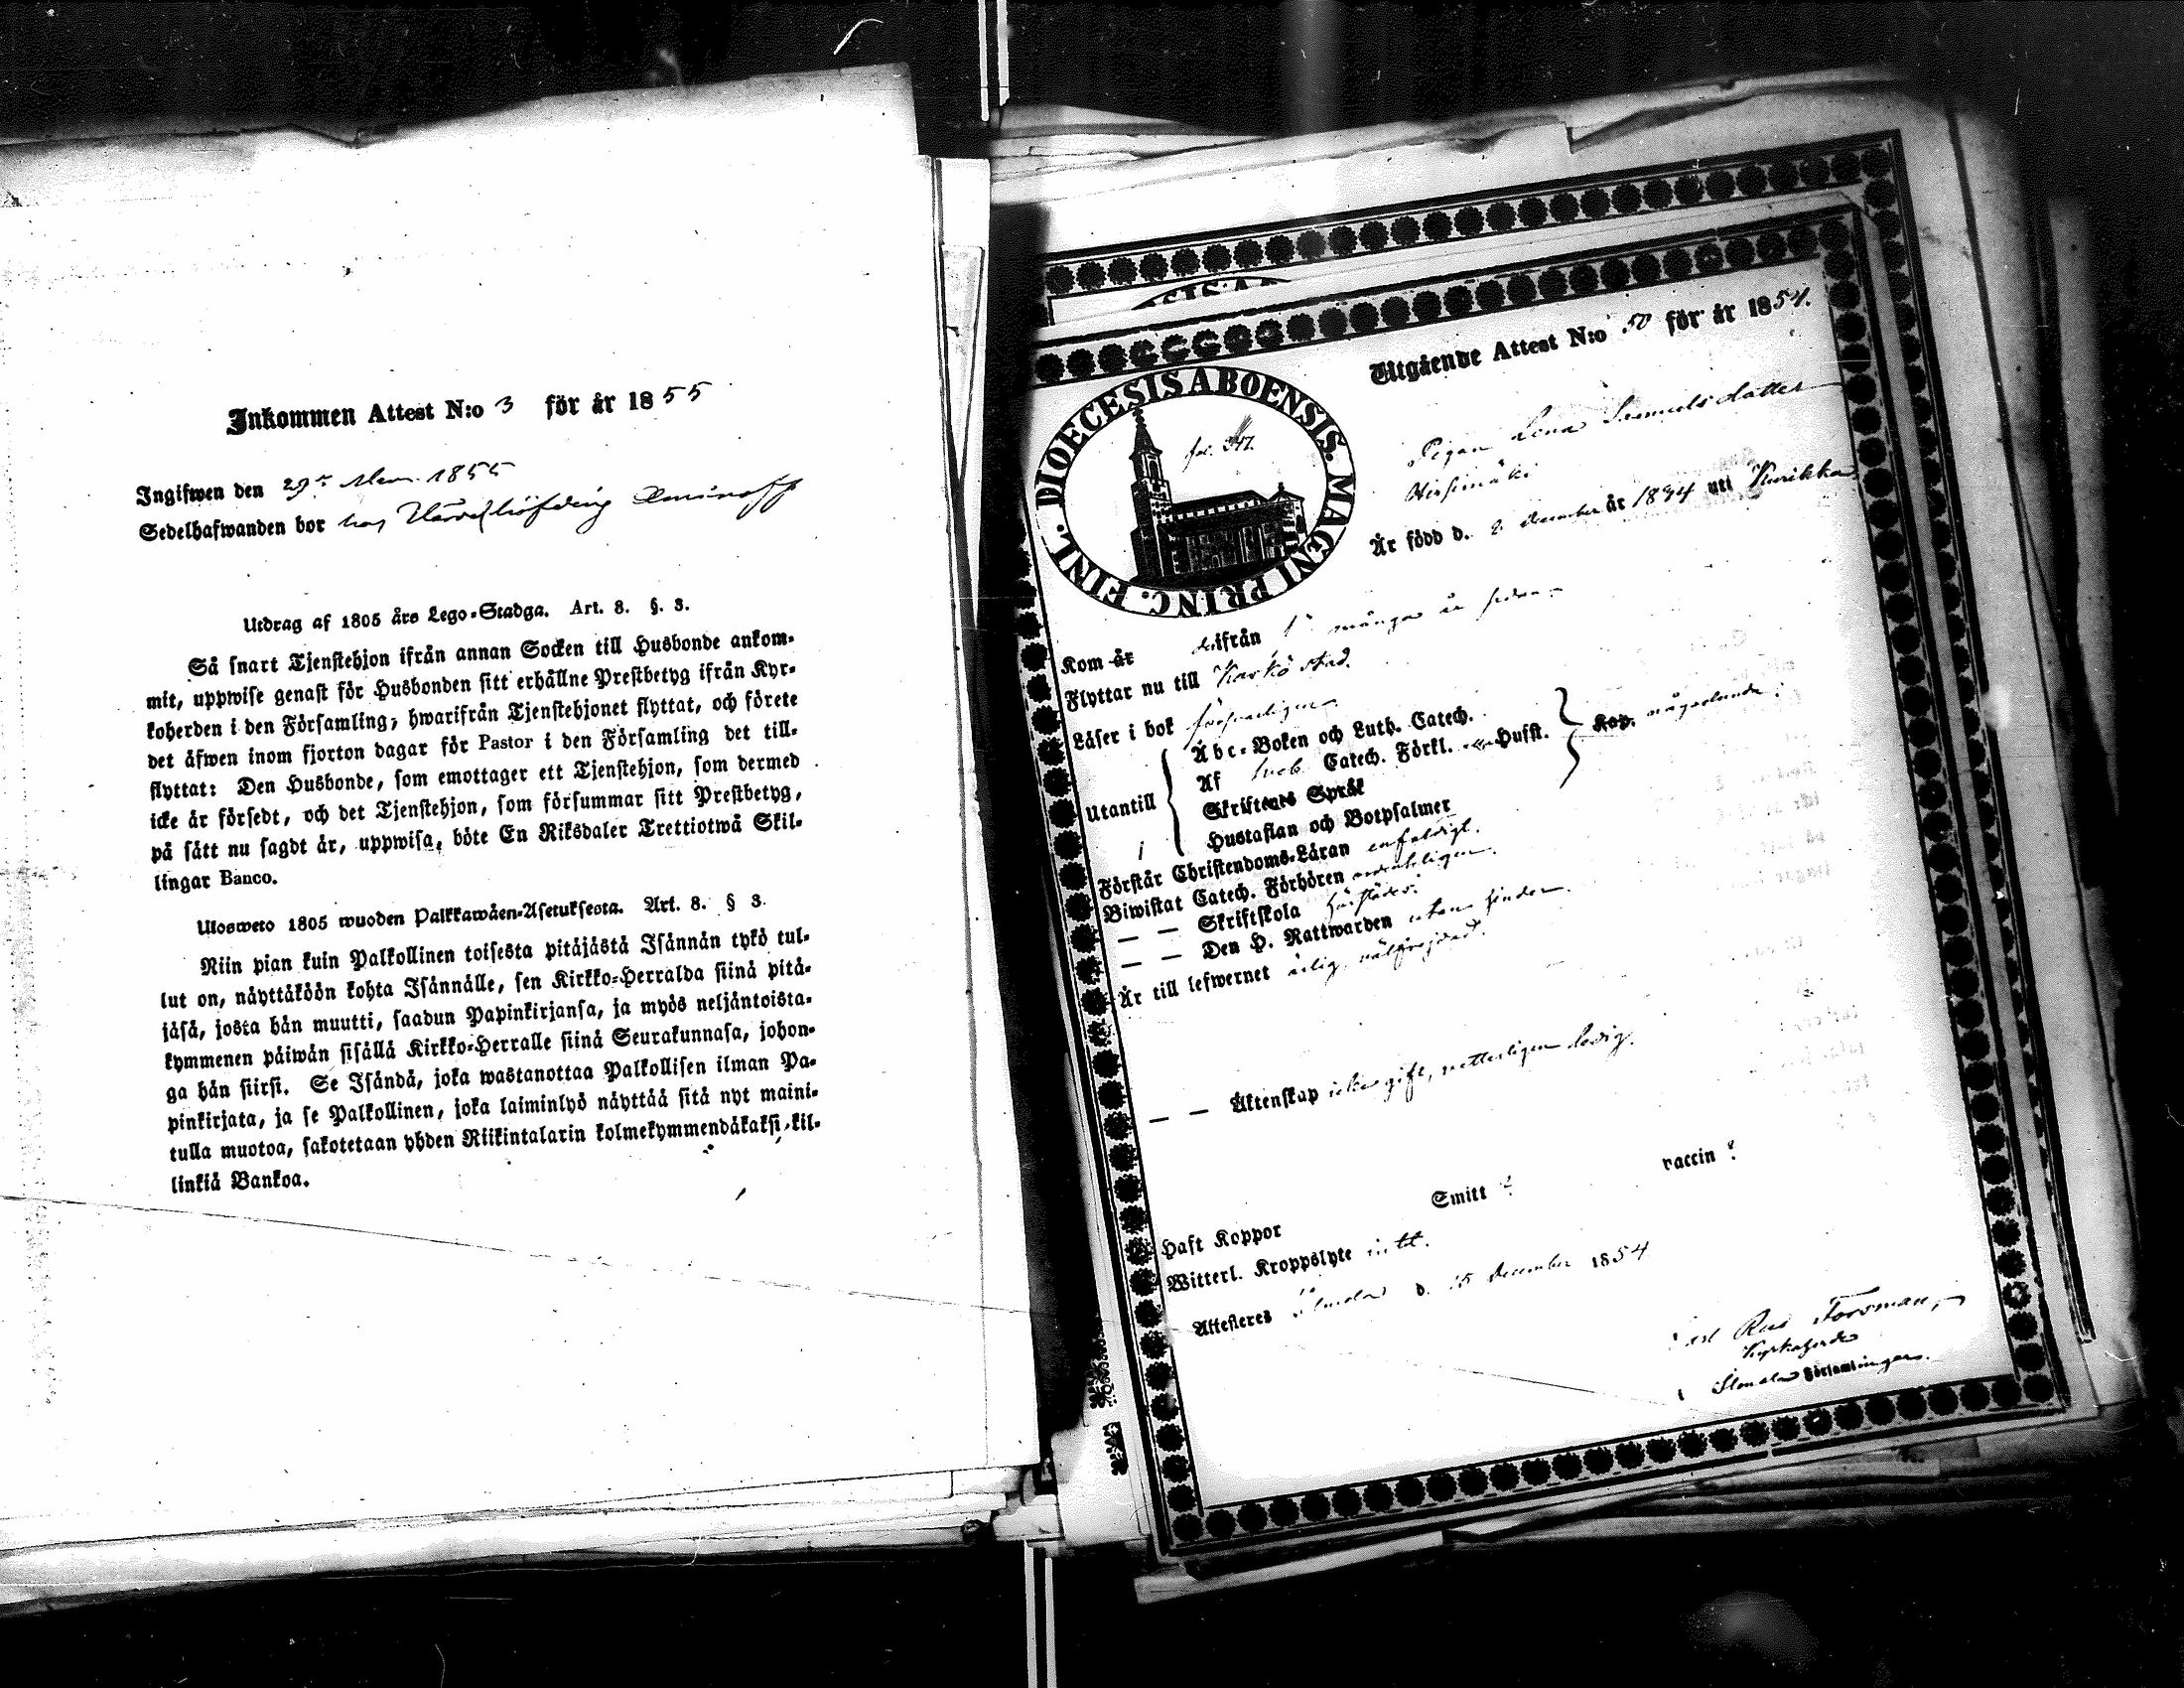 Inkommen Attest N:o 3 för år 1855
Ingifwen den 29 1855
Sedelhafwanden bor hos Häradshöfding Aminoff
Utdrag af 1805 års Lego-Stadga. Art. 8. §. 3.
Så snart Tjenstehjon ifrån annan Socken till Husbonde ankom-
mit, uppwise genast för Husbonden sitt erhållne Prestbetyg ifrån Kyr-
koherden i den Församling, hwarifrån Tjenstehjonet flyttat, och förete
det äfwen inom fjorton dagar för Pastor i den Församling det till-
flyttat: Den Husbonde, som emottager ett Tjenstehjon, som dermed
icke är försedt, och det Tjenstehjon, som försummar sitt Prestbetyg,
på sätt nu sagdt är, uppwisa, böte En Riksdaler Trettiotwå Skil-
lingar Banco.
Ulosweto 1805 wuoden Palkkawäen-Asetuksesta. Art. 8. § 3.
Niin pian kuin Palkollinen toisesta pitäjästä Isännän tykö tul-
lut on, näyttäköön kohta Isännälle, sen Kirkko-Herralda siinä pitä-
jäsä, josta hän muutti, saadun Papinkirjansa, ja myös neljäntoista-
kymmenen päiwän sisällä Kirkko-Herralle siinä Seurakunnasa, johon-
ga hän siirsi. Se Isändä, joka wastanottaa Palkollisen ilman Pa-
pinkirjata, ja se Palkollinen, joka laiminlyö näyttää sitä nyt maini-
tulla muotoa, sakotetaan yhden Riikintalarin kolmekymmendäkaksi kil-
linkiä Bankoa.
Utgående Attest N:o 50 för år 1854.
DIOECESIS ABOENSIS. MAGNI PRINC. FINL.
fol.
Pigan Lena Samuelsdotter
Är född d. 2 December år 1834 uti Kurikka
Kom år ifrån många år sedan
Flyttar nu till Kaskö stad.
Läser i bok försvarligen
Utantill
Abc-Boken och Luth. Catech.
Af Sveb. Catech. Förkl. Husst.
Skriftenes Språk
Hustaflan och Botpsalmer
Kap. någorlunda
Förstår Christendoms-Läran enfaldigt.
Biwistat Catech. Förhören ordentligen.
— — Skriftskola härstädes
— — Den H. Nattwarden utan hinder.
Är till lefwernet ärlig, välfrejdad.
— — Äktenskap icke gift, ledig.
Haft Koppor Smitt ? vaccin ?
Witterl. Kroppslyte intet.
Attesteres Ilmola d. 15 December 1854
Forsman,
Kyrkoherde
i Ilmola Församlingar.